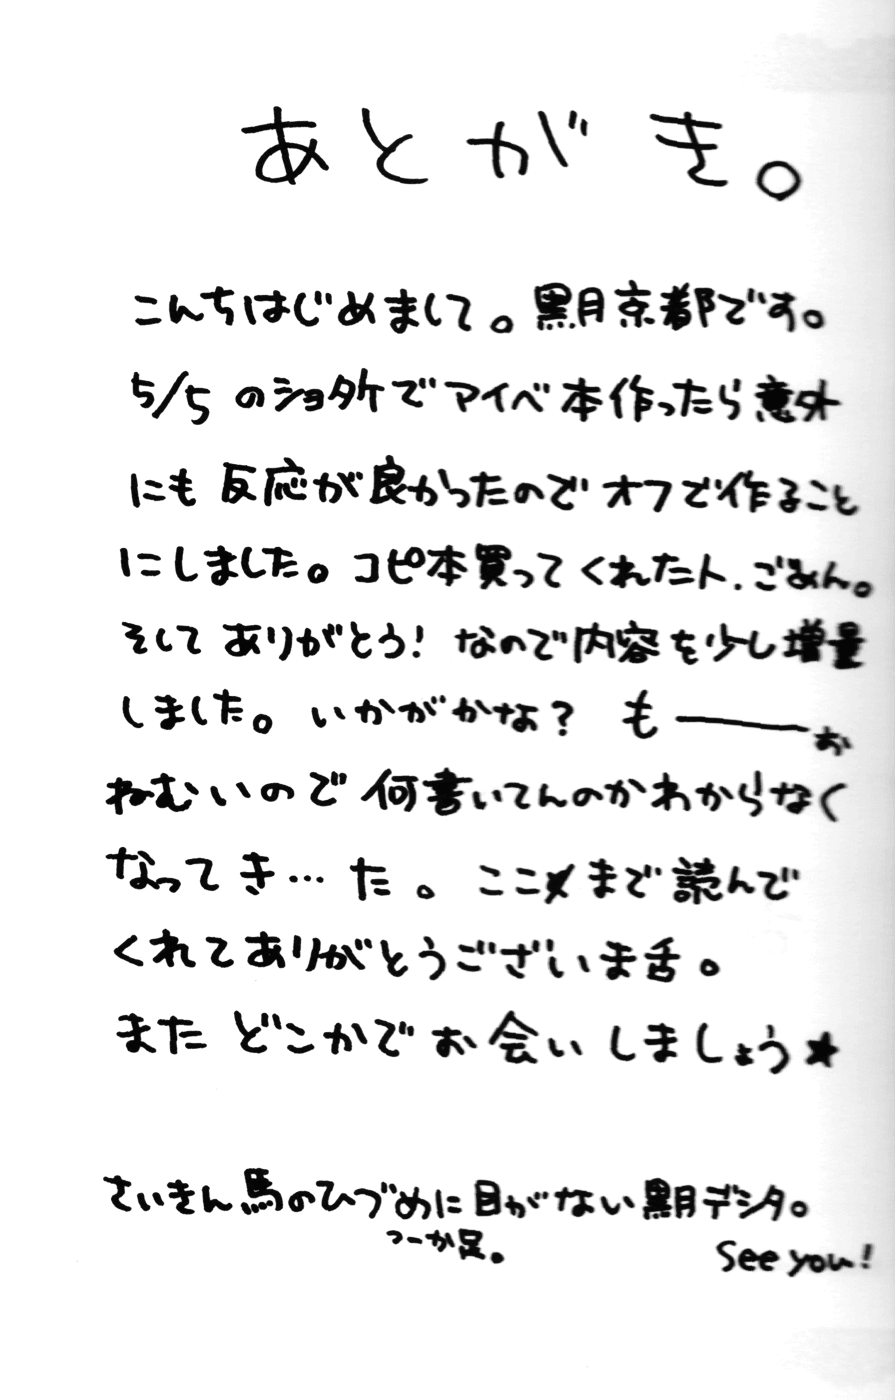 あとがき。
こんちはじめまして。黒月京都です。
5/5 のショタケでマイベ本作ったら意外
にも反応が良かったのでオフで作ること
にしました。コピ本買ってくれた人、ごめん。
そしてありがとう！なので内容を少し増量
しました。いかがかな？ も———お
ねむいので何書いてんのかわからなく
なってき…た。ここまで読んで
くれてありがとうございま舌。
またどこかでお会いしましょう★
さいきん馬のひづめに目がない黒月デシタ。
つーか足。
See you!